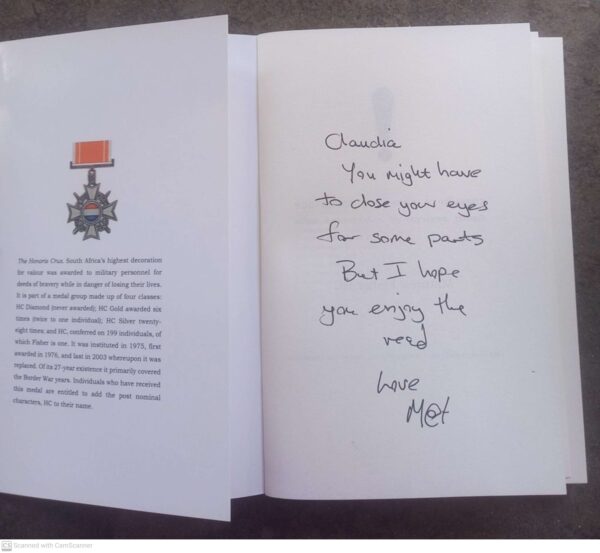 The Honoris Crux. South Africa's highest decoration
for valour was awarded to military personnel for
deeds of bravery while in danger of losing their lives.
It is part of a medal group made up of four classes:
HC Diamond (never awarded); HC Gold awarded six
times (twice to one individual); HC Silver twenty-
eight times; and HC, conferred on 199 individuals, of
which Fisher is one. It was instituted in 1975, first
awarded in 1976, and last in 2003 whereupon it was
replaced. Of its 27-year existence it primarily covered
the Border War years. Individuals who have received
this medal are entitled to add the post nominal
characters, HC to their name.
Claudia
You might have
to close your eyes
for some parts
But I hope
you enjoy the
read
Love
CS Scanned with CamScanner